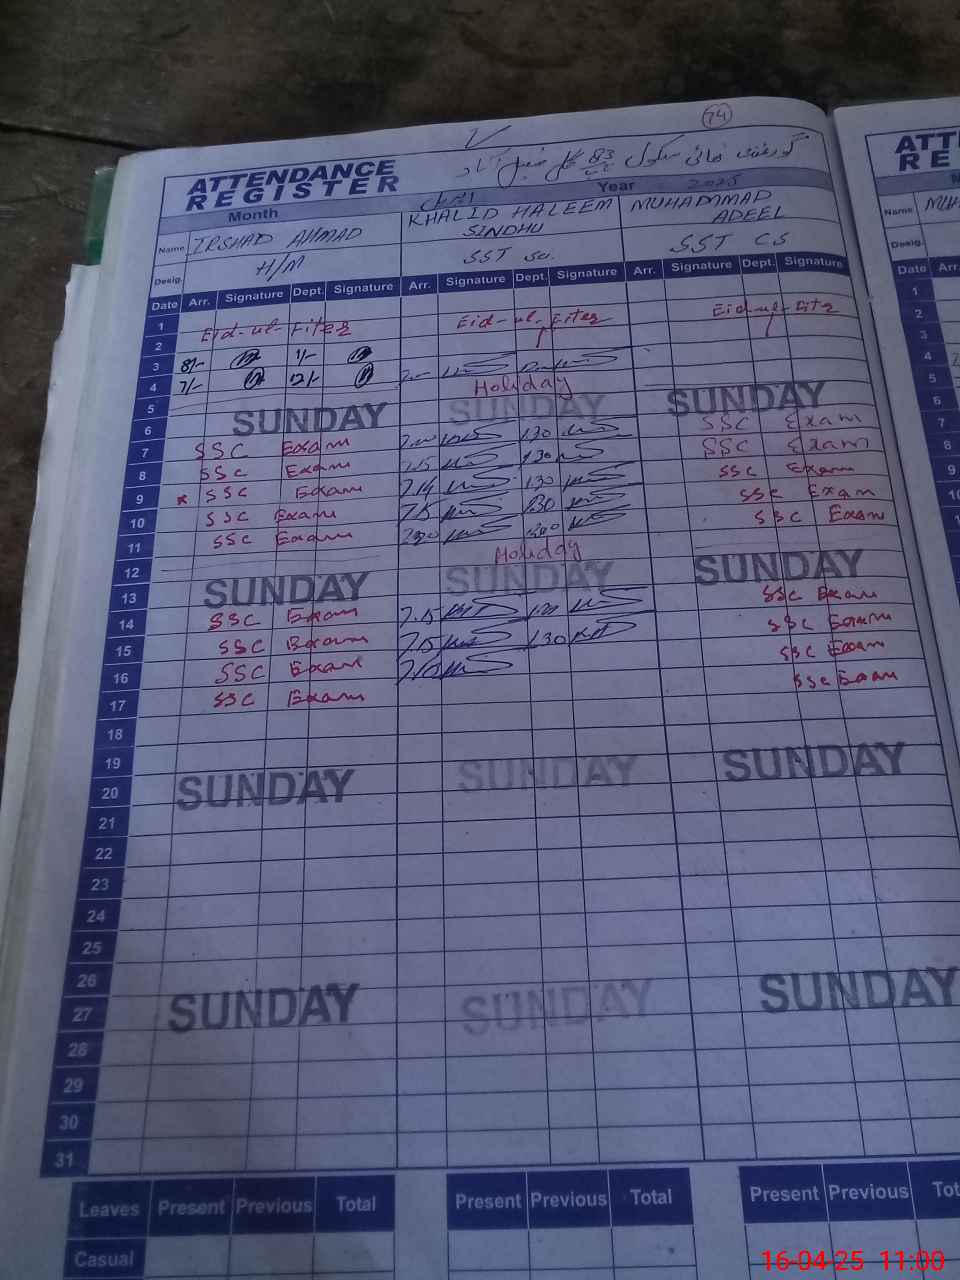 74
گورنمنٹ ہائی سکول 83 گ ب فیصل آباد
ATTENDANCE
REGISTER
Month اپریل Year 2025
Name IRSHAD AHMAD KHALID HALEEM SINDHU MUHAMMAD ADEEL
Desig. H/M SST Sc. SST CS
Date Arr. Signature Dept. Signature Arr. Signature Dept. Signature Arr. Signature Dept. Signature
1 Eid-ul-Fiter Eid-ul-Fiter Eid-ul-Fitr
2
3 8/- 1/-
4 7/- 12/-
5 Holiday
6 SUNDAY SUNDAY SUNDAY
7 SSC Exam 1.30 SSC Exam
8 SSC Exam 7.15 1.30 SSC Exam
9 SSC Exam 7.14 1.30 SSC Exam
10 SSC Exam 7.15 1.30 SSC Exam
11 SSC Exam SSC Exam
12 Holiday
13 SUNDAY SUNDAY SUNDAY
14 SSC Exam 7.15 1.30 SSC Exam
15 SSC Exam 7.15 1.30 SSC Exam
16 SSC Exam SSC Exam
17 SSC Exam SSC Exam
18
19
20 SUNDAY SUNDAY SUNDAY
21
22
23
24
25
26
27 SUNDAY SUNDAY SUNDAY
28
29
30
31
Leaves Present Previous Total Present Previous Total Present Previous Tot
Casual
ATTEN
RE
Name MUH
Desig.
Date Arr.
1
2
3
4
5
6
7
8
9
10
16-04-25 11:00